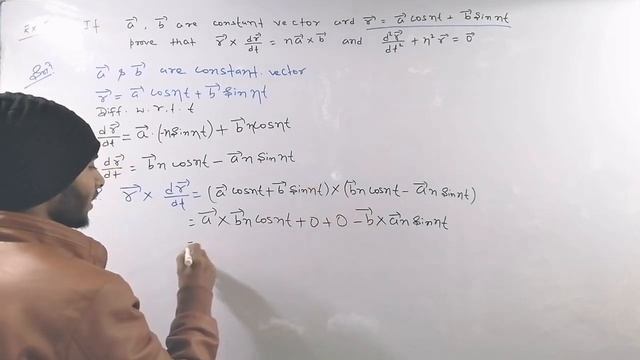 Ex If a⃗, b⃗ are constant vector and r⃗ = a⃗ cosnt + b⃗ sinnt
prove that r⃗ × dr⃗/dt = na⃗ × b⃗ and d²r⃗/dt² + n² r⃗ = 0⃗
Sol? a⃗ & b⃗ are constant vector
r⃗ = a⃗ cosnt + b⃗ sinnt
Diff. w.r.t. t
dr⃗/dt = a⃗·(-nsinnt) + b⃗ncosnt
dr⃗/dt = b⃗n cosnt - a⃗n sinnt
r⃗ × dr⃗/dt = (a⃗ cosnt + b⃗ sinnt) × (b⃗n cosnt - a⃗n sinnt)
= a⃗ × b⃗n cosnt + 0 + 0 - b⃗ × a⃗n sinnt
=